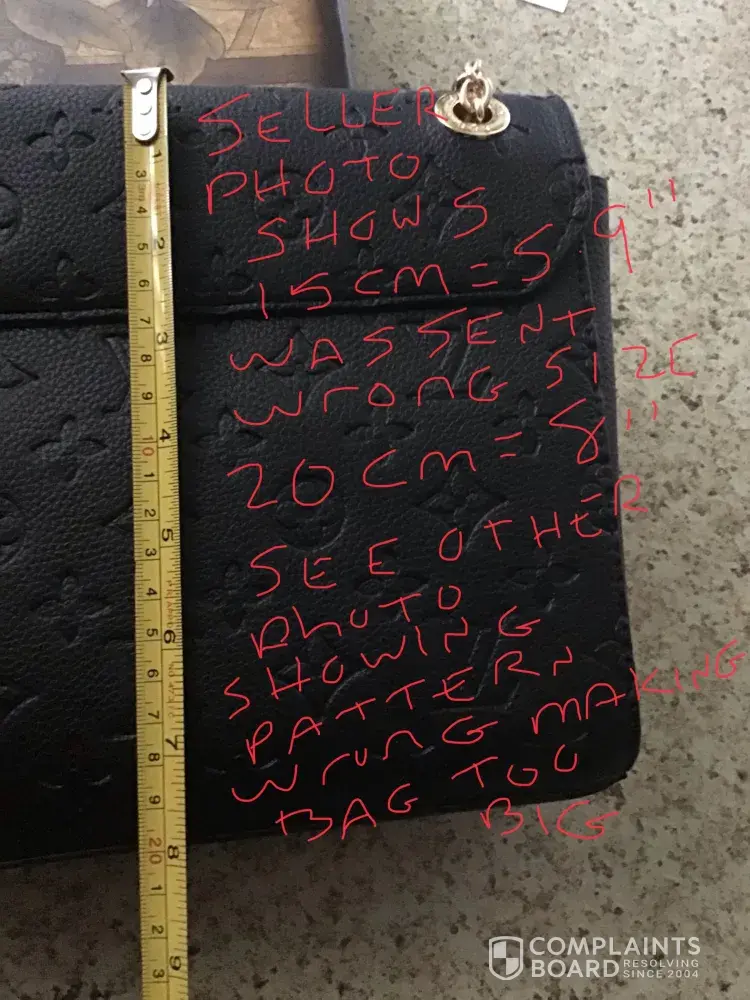 SELLER
PHOTO
SHOWS
15CM = 5.9"
WAS SENT
WrONG SIZE
20CM = 8"
SEE OTHER
PhOTO
SHOWING
PATTERN
WrONG MAKING
BAG TOO
BIG
1
2
3
4
5
6
7
8
9
3
4
5
6
7
8
9
10
1
2
3
4
5
6
7
8
9
20
1
2
3
COMPLAINTS
BOARD RESOLVING
SINCE 2004